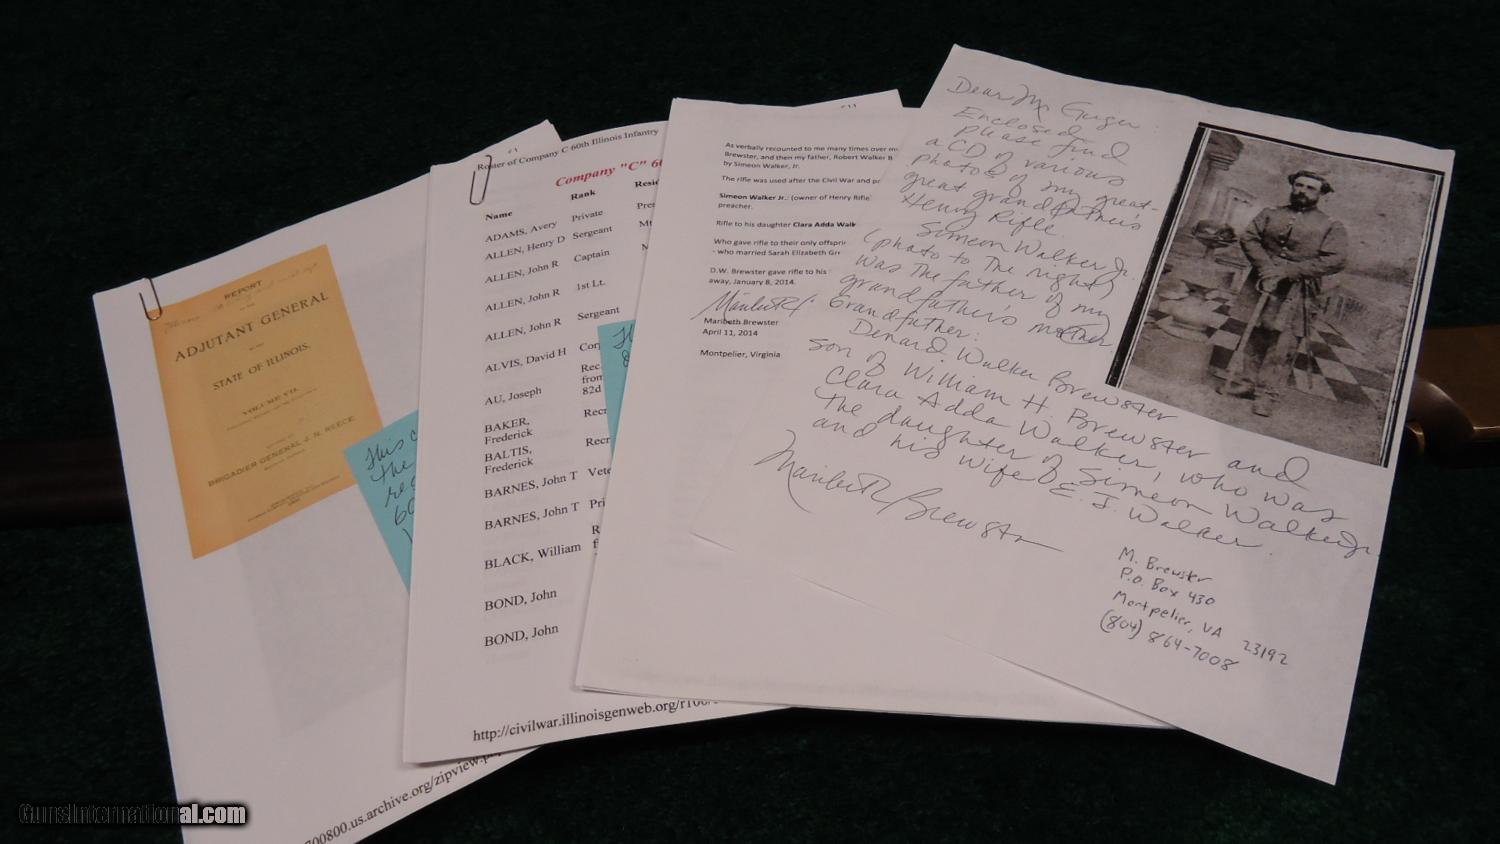 REPORT
ADJUTANT GENERAL
OF THE
STATE OF ILLINOIS.
VOLUME VII.
BRIGADIER GENERAL J. N. REECE
This c
the
re
60
700800.us.archive.org/zipview.p
Roster of Company C 60th Illinois Infantry
Company "C" 60
Name Rank Resi
ADAMS, Avery Private Pre
ALLEN, Henry D Sergeant
ALLEN, John R Captain
ALLEN, John R 1st Lt.
ALLEN, John R Sergeant
ALVIS, David H
AU, Joseph Rec
from
82d
BAKER,
Frederick Recr
BALTIS,
Frederick Recr
BARNES, John T Vete
BARNES, John T Pri
BLACK, William
BOND, John
BOND, John
http://civilwar.illinoisgenweb.org/r100/
As verbally recounted to me many times over m
Brewster, and then my father, Robert Walker B
by Simeon Walker, Jr.
The rifle was used after the Civil War and pr
Simeon Walker Jr.: (owner of Henry Rifle
preacher.
Rifle to his daughter Clara Adda Walk
Who gave rifle to their only offspri
- who married Sarah Elizabeth Gre
D.W. Brewster gave rifle to his
away, January 8, 2014.
Maribeth Brewster
April 11, 2014
Montpelier, Virginia
Dear Mr
Enclosed
please find
a CD of various
photos of my great-
great grandfather's
Henry Rifle.
Simeon Walker Jr.
(photo to the right)
was the father of my
grandfather's mother
Grandfather:
Denard Walker Brewster
son of William H. Brewster and
Clara Adda Walker, who was
the daughter of Simeon Walker Jr
and his wife E. J. Walker.
Maribeth Brewster
M. Brewster
P.O. Box 430
Montpelier, VA 23192
(804) 864-7008
GunsInternational.com